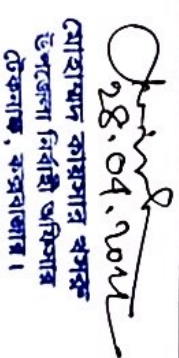 মোহাম্মদ কায়সার খসরু
উপজেলা নির্বাহী অফিসার
টেকনাফ, কক্সবাজার।